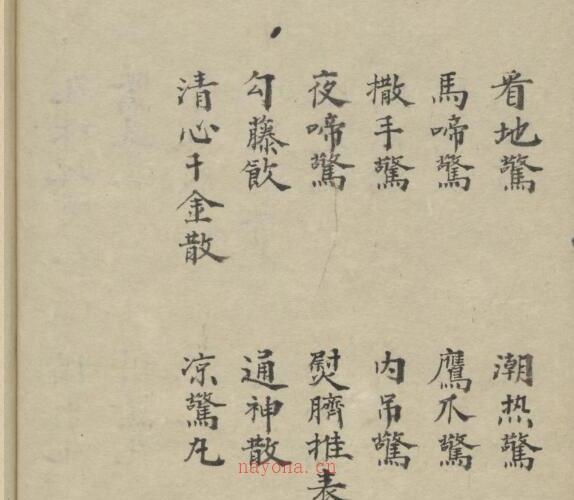 看地驚
潮热驚
馬啼驚
鷹爪驚
撒手驚
内吊驚
夜啼驚
熨臍推表
勾藤飲
通神散
清心千金散
凉驚丸
nayona.cn